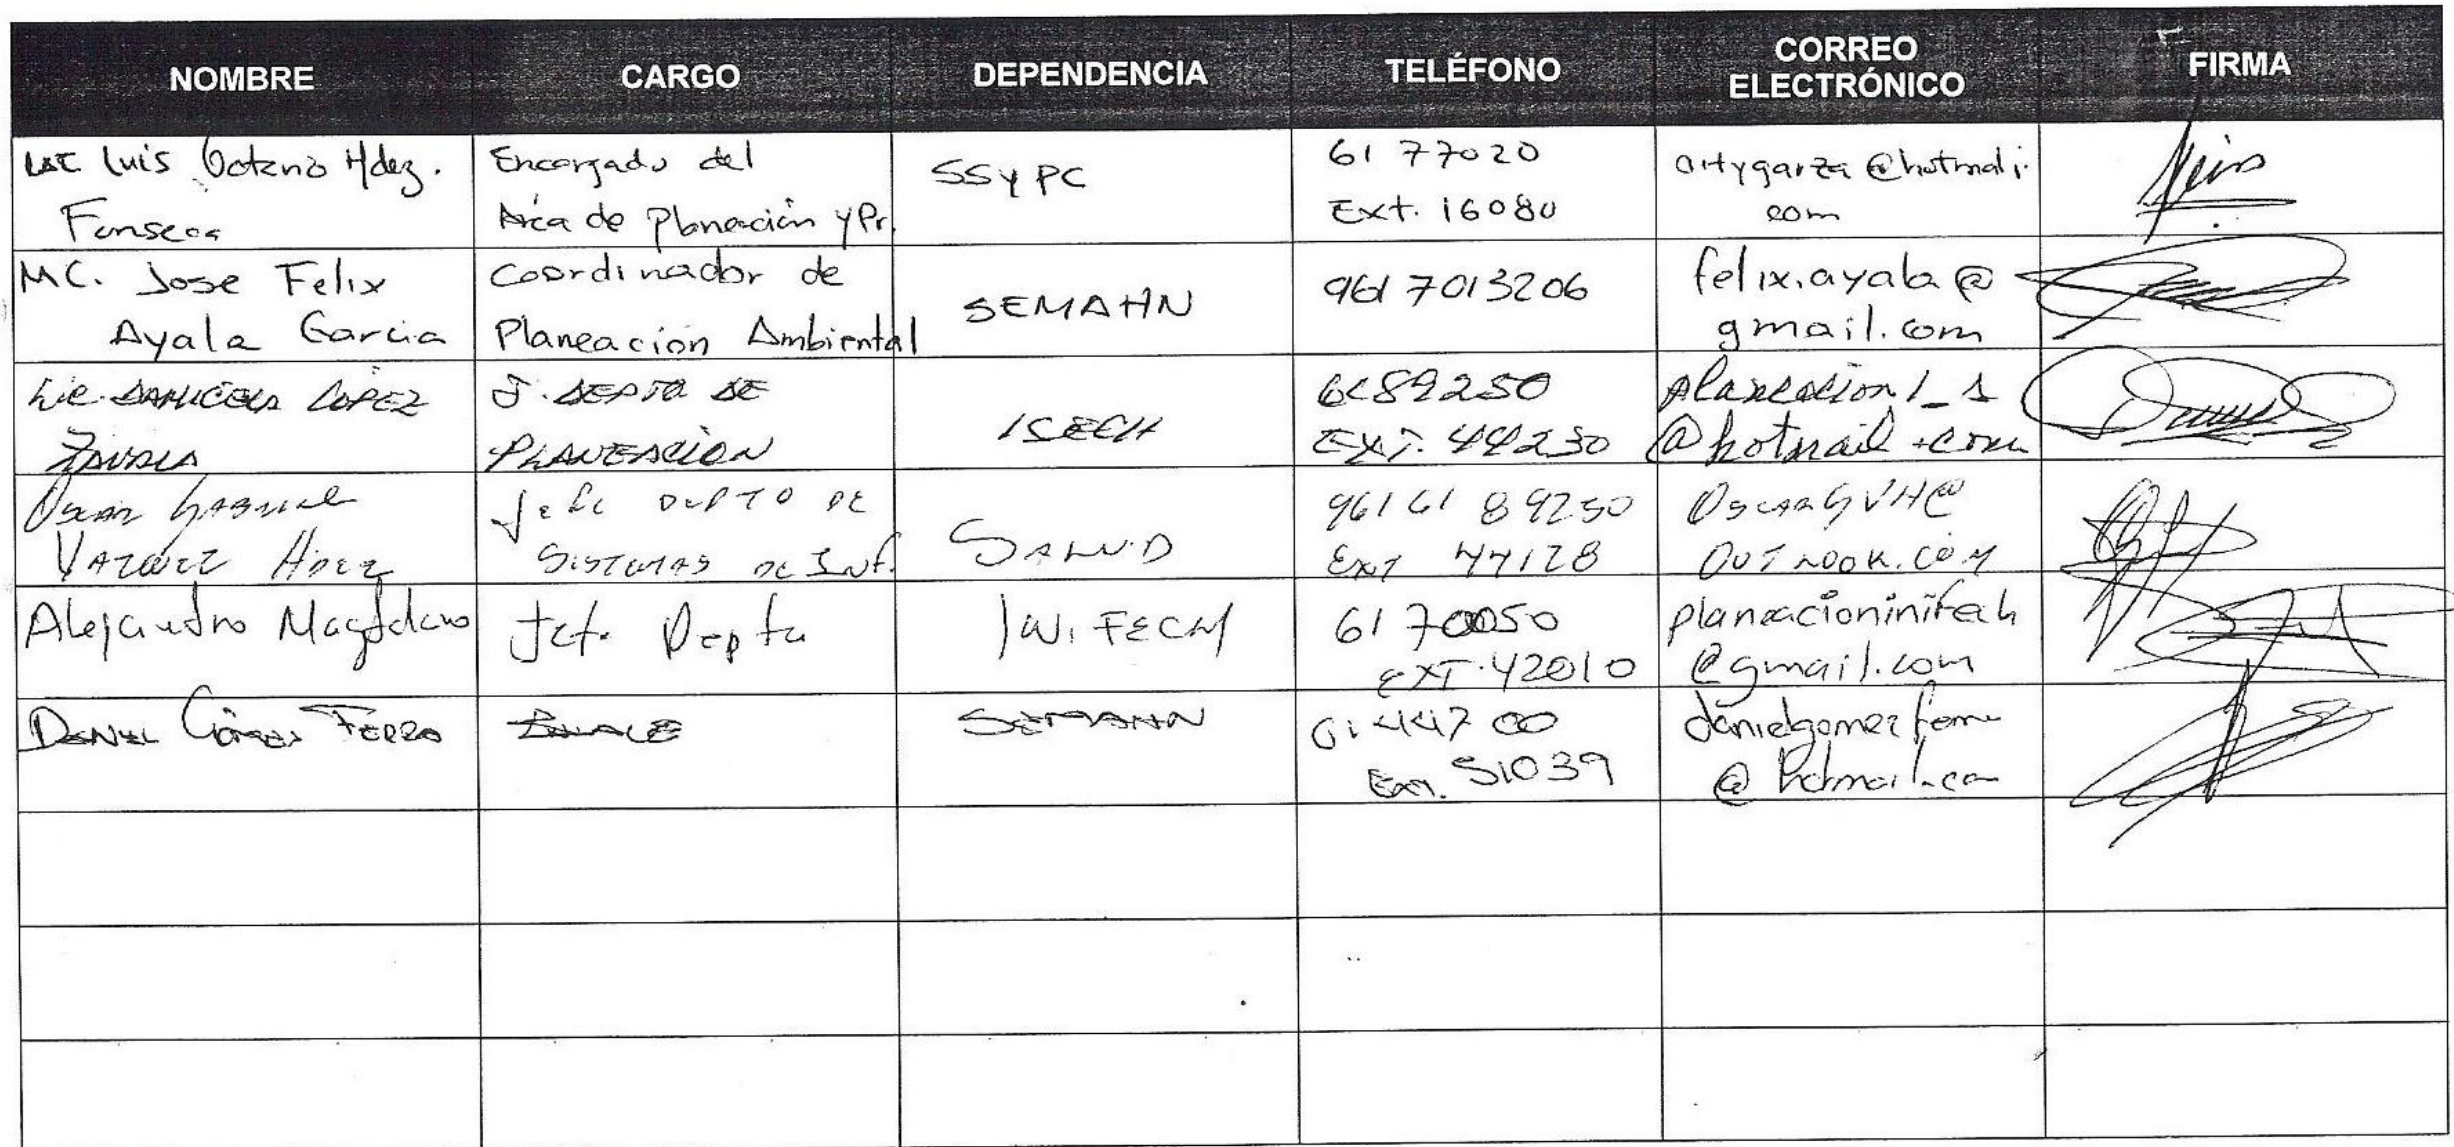 NOMBRE
CARGO
DEPENDENCIA
TELÉFONO
CORREO
ELECTRÓNICO
FIRMA
Luis Octavio Hdez.
Fonseca
Encargado del
Area de Planeación y Pr.
SSYPC
61 77020
Ext. 16080
artygarza@hotmali.
com
MC. Jose Felix
Ayala Garcia
Coordinador de
Planeación Ambiental
SEMAHN
961 7013206
felix.ayala@
gmail.com
Lic. DANICELA LOPEZ
ZAVALA
J. DEPTO DE
PLANEACION
ISECH
6189250
EXT. 44230
planeacion1_1
@hotmail.com
OSCAR GABRIEL
VAZQUEZ HDEZ
JEFE DEPTO DE
SISTEMAS DE INF.
SALUD
961 61 89250
EXT 44128
OSCARGVH@
OUTLOOK.COM
Alejandro Magdaleno
Jefe Depto
INIFECH
61 70050
EXT. 42010
planeacioninifech
@gmail.com
DANIEL Gómez FERRO
ENLACE
SEMAHN
61 44700
Ext. 51039
danielgomezferro
@hotmail.com